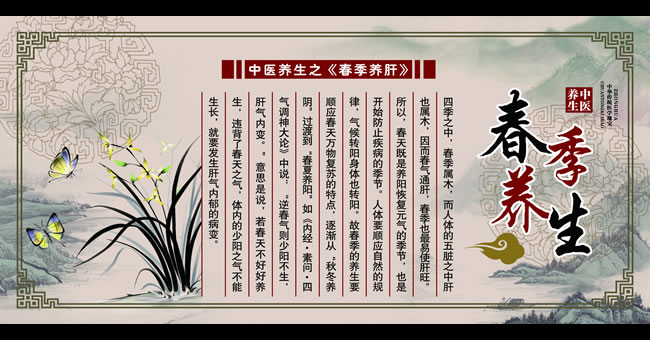 中医养生
中华传统医学瑰宝
春季
养生
中医养生之《春季养肝》
四季之中，春季属木，而人体的五脏之中肝
也属木，因而春气通肝，春季也最易使肝旺。
所以，春天既是养阳恢复元气的季节，也是
开始防止疾病的季节。人体要顺应自然的规
律，气候转阳身体也转阳。故春季的养生要
顺应春天万物复苏的特点，逐渐从“秋冬养
阴。过渡到“春夏养阳。如《内经·素问·四
气调神大论》中说：“逆春气则少阳不生，
肝气内变。”意思是说，若春天不好好养
生，违背了春天之气，体内的少阳之气不能
生长，就要发生肝气内郁的病变。